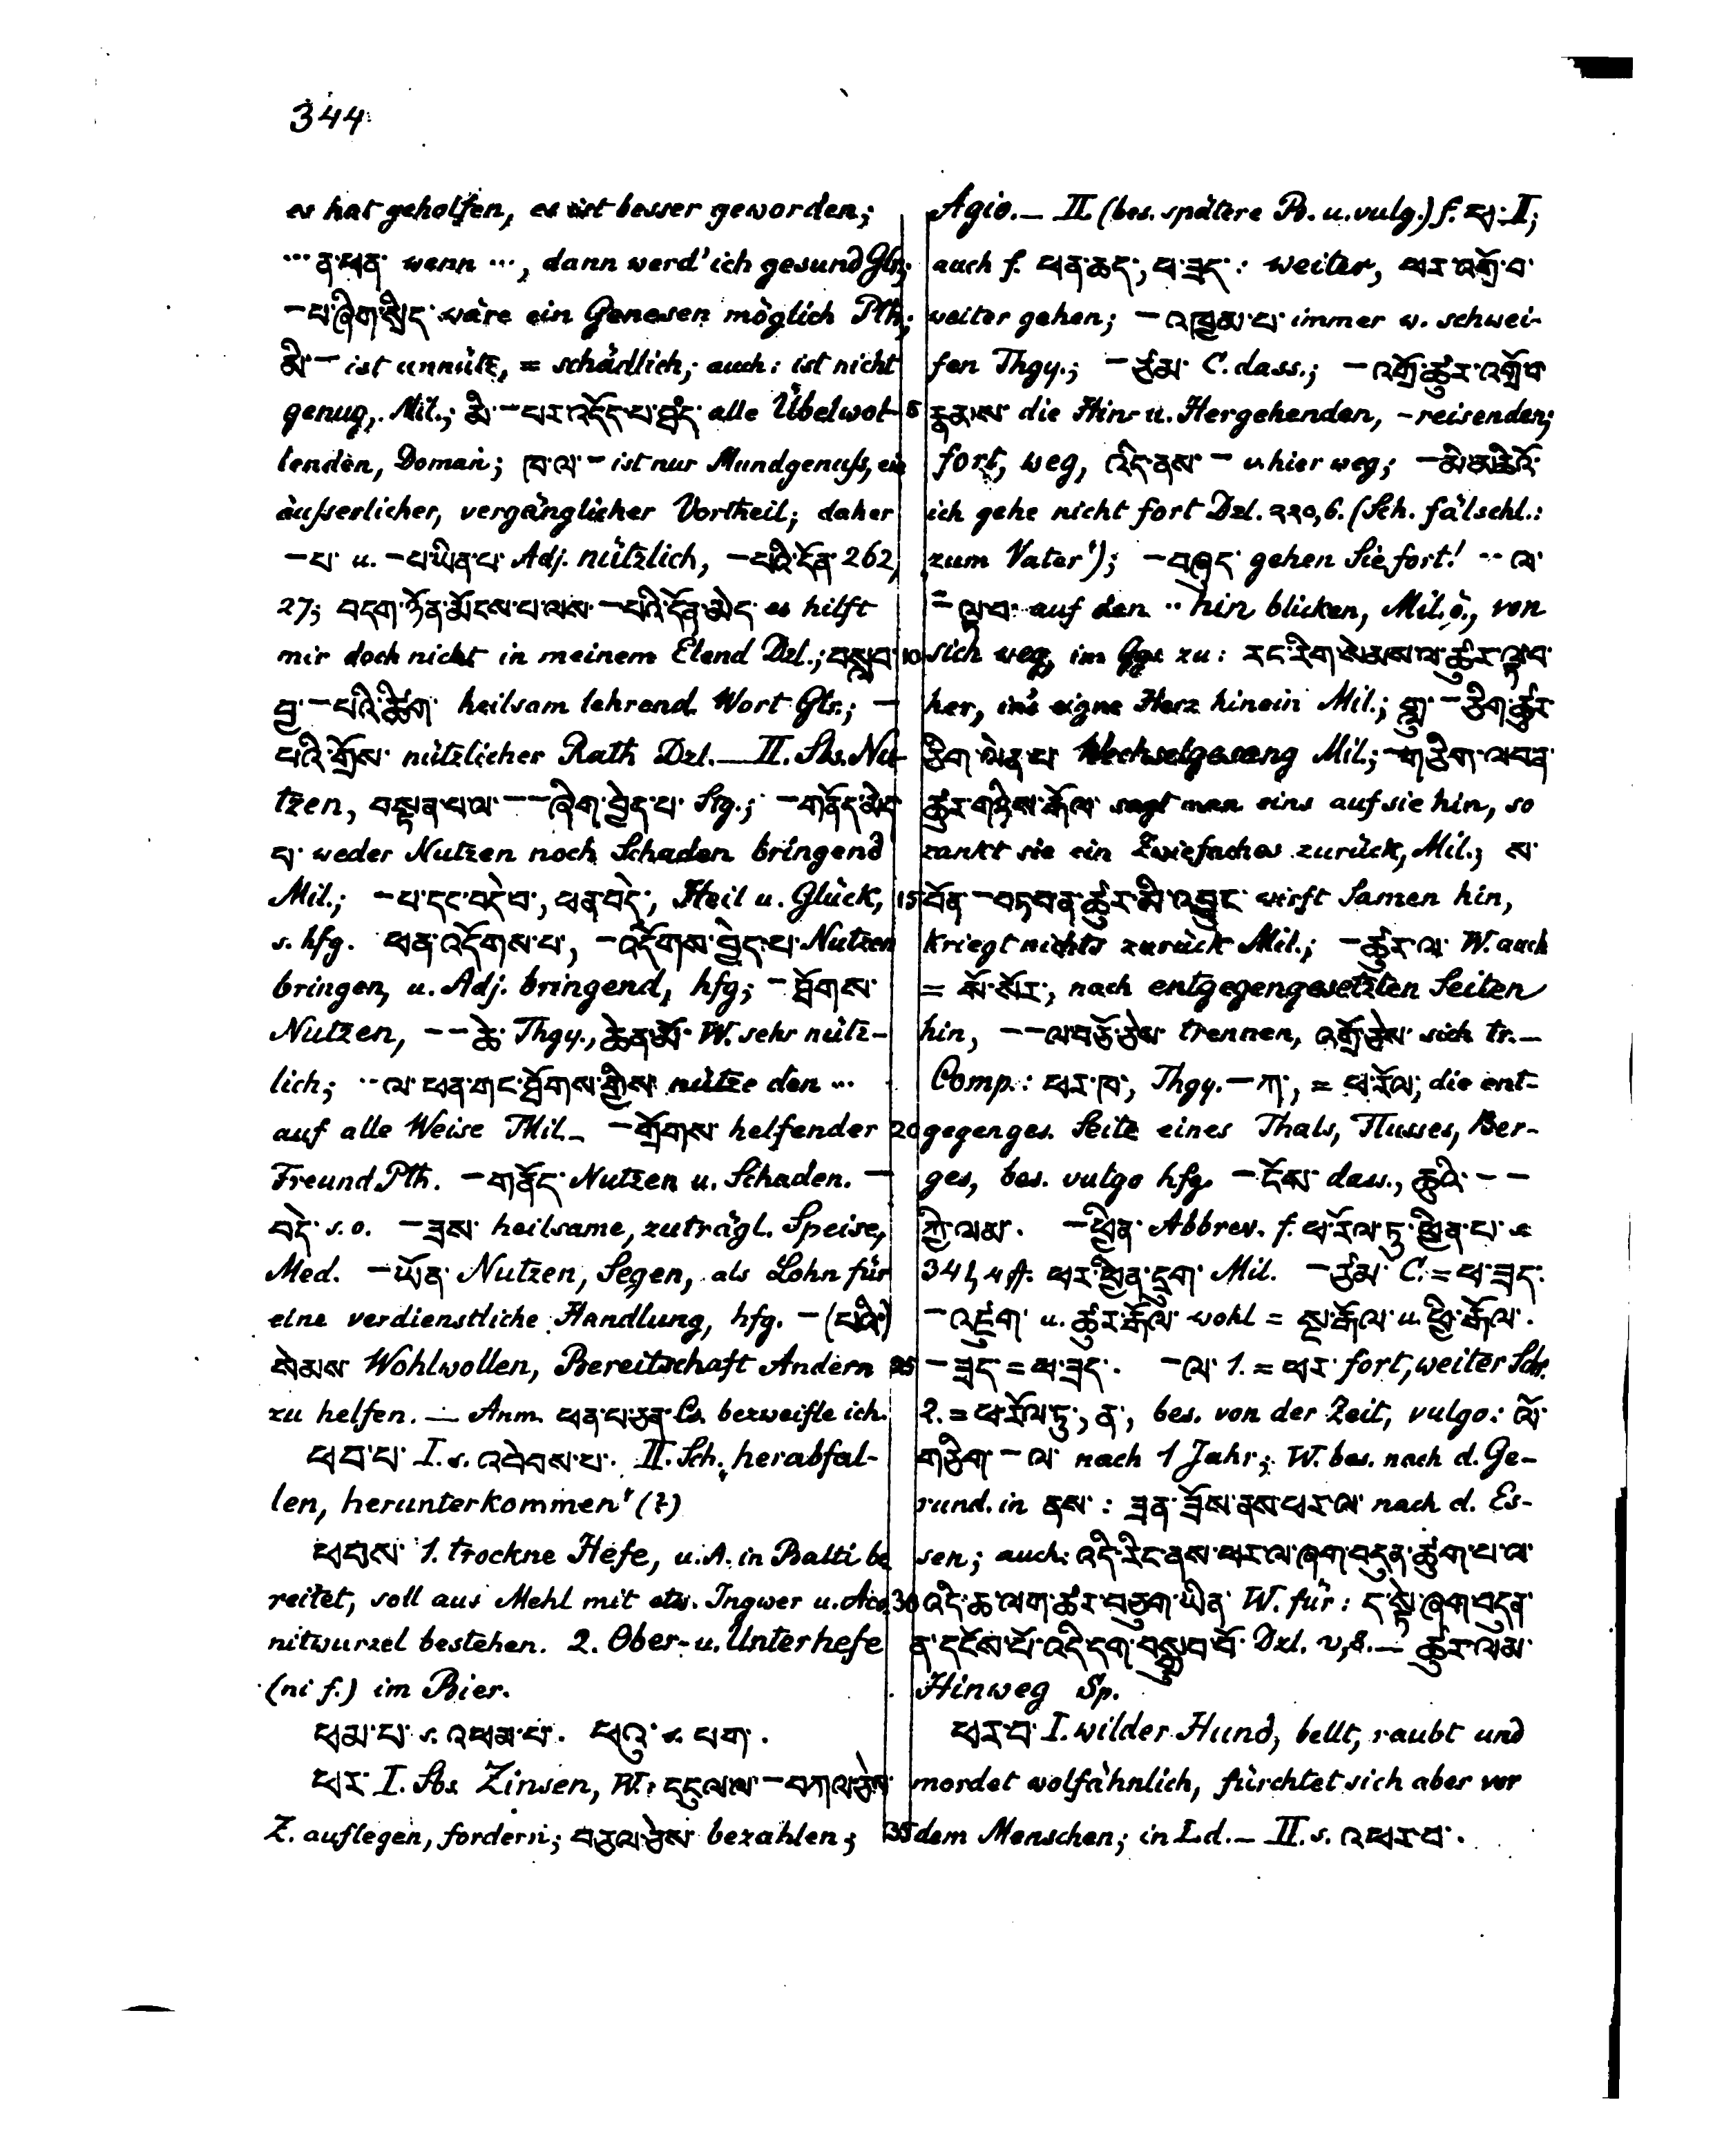 344
es hat geholfen, es ist besser geworden;
··· ན་ཕན་ wenn ···, dann werd' ich gesund Glr.;
–པ་ཞིག་སྲིད་ wäre ein Genesen möglich Pth.;
མི་– ist unnütz, = schädlich; auch: ist nicht
genug, Mil.; མི་–པར་འདོད་པ་ alle Übelwol-
lenden, Doman; ཁ་ལ་– ist nur Mundgenuß, ein
äußerlicher, vergänglicher Vortheil; daher
–པ་ u. –པ་ཡིན་པ་ Adj. nützlich, –པའི་དོན་ 262,
27; བདག་ཉོན་མོངས་པ་ལས་–པའི་དོན་མེད་ es hilft
mir doch nicht in meinem Elend Dzl.; བསླབ་
བྱ་–པའི་ཚིག་ heilsam lehrend Wort Glr.; –
པའི་གྲོས་ nützlicher Rath Dzl. — II. Sbs. Nu-
tzen, བསྟན་པ་ལ་––ཞིག་བྱེད་པ་ Stg.; –གནོད་མེད་
པ་ weder Nutzen noch Schaden bringend
Mil.; –པ་དང་བདེ་བ་, ཕན་བདེ་, Heil u. Glück,
s. hfg. ཕན་འདོགས་པ་, –འདོགས་བྱེད་པ་ Nutzen
bringen, u. Adj. bringend, hfg; –ཐོགས་
Nutzen, ––ཆེ་ Thgy., ཆེན་མོ་ W. sehr nütz-
lich; ··ལ་ཕན་གང་ཐོགས་གྱིས་ nütze den ···
auf alle Weise Mil. – –གྲོགས་ helfender
Freund Pth. –གནོད་ Nutzen u. Schaden. –
བདེ་ s. o. –ཟས་ heilsame, zuträgl. Speise,
Med. –ཡོན་ Nutzen, Segen, als Lohn für
eine verdienstliche Handlung, hfg. –(པའི་)
སེམས་ Wohlwollen, Bereitschaft Andern
zu helfen. — Anm. ཕན་པ་ཅན་ Cs. bezweifle ich.
ཕབ་པ་ I. s. འབེབས་པ་. II. Sch. „herabfal-
len, herunterkommen" (?)
ཕབས་ 1. trockne Hefe, u. A. in Balti be
reitet, soll aus Mehl mit etw. Ingwer u. Aco
nitwurzel bestehen. 2. Ober- u. Unterhefe
(ni f.) im Bier.
ཕམ་པ་ s. འཕམ་པ་. ཕའུ་ s. པག་.
ཕར་ I. Sbs. Zinsen, W.: དངུལ་ལ་–བཀལ་ཅེས་
Z. auflegen, fordern; བཅལ་ཅེས་ bezahlen;
Agio. — II. (bes. spätere Po. u. vulg.) f. ཕ་ I;
auch f. ཕན་ཆད་, ཕ་ཟད་: weiter, ཕར་འགྲོ་བ་
weiter gehen; –འཁྱམ་པ་ immer w. schwei-
fen Thgy.; –ཙམ་ C. dass.; –འགྲོ་ཚུར་འགྲོ་བ་
རྣམས་ die Hin- u. Hergehenden, -reisenden;
fort, weg, འདི་ནས་– v. hier weg; –མི་མཆིའོ་
ich gehe nicht fort Dzl. ༢༢༠, 6. (Sch. fälschl.:
„zum Vater"); –བཞུད་ gehen Sie fort! ··ལ་
–ལྟ་བ་ auf den ·· hin blicken, Mil. ö., von
sich weg, im Ggs. zu: རང་རིག་སེམས་ལ་ཚུར་ལྟ་བ་
her, in's eigne Herz hinein Mil.; གླུ་–ཅིག་ཚུར་
ཅིག་ལེན་པ་ Wechselgesang Mil.; –གཅིག་ལབ་ན་
ཚུར་གཉིས་རྒོལ་ sagt man eins auf sie hin, so
zankt sie ein Zwiefaches zurück, Mil.; ས་
བོན་–བཏབ་ན་ཚུར་མི་འབྱུང་ wirft Samen hin,
kriegt nichts zurück Mil.; –ཚུར་ལ་ W. auch
= སོ་སོར་, nach entgegengesetzten Seiten
hin, ––ལ་བཅོ་ཅེས་ trennen, འགྲོ་ཅེས་ sich tr. —
Comp.: ཕར་ཁ་, Thgy. –ཀ་, = ཕ་རོལ་, die ent-
gegenges. Seite eines Thals, Flusses, Ber-
ges, bes. vulgo hfg. –ངོས་ dass., ཆུའི་––
ཀྱི་ལམ་. –ཕྱིན་ Abbrev. f. ཕ་རོལ་ཏུ་ཕྱིན་པ་ s.
341, 4 ff: ཕར་ཕྱིན་དྲུག་ Mil. –ཙམ་ C. = ཕ་ཟད་.
–འཛུག་ u. ཚུར་རྒོལ་ wohl = སྔ་རྒོལ་ u. ཕྱི་རྒོལ་.
–ཟད་ = ཕ་ཟད་. –ལ་ 1. = ཕར་ fort, weiter Sch.
2. = ཕ་རོལ་ཏུ་, ན་, bes. von der Zeit, vulgo: ལོ་
གཅིག་–ལ་ nach 1 Jahr; W. bes. nach d. Ge-
rund. in ནས་: ཟན་ཟོས་ནས་ཕར་ལ་ nach d. Es-
sen; auch: འདི་རིང་ནས་ཕར་ལ་ཞག་བདུན་ཚུག་པ་ལ་
འདི་ཆ་ལག་ཚར་བཅུག་ཡིན་ W. für: ད་སྟེ་ཞག་བདུན་
ན་དངོས་པོ་འདི་དག་བསྒྲུབ་བོ་ Dzl. ༢, 8. — ཚུར་ལམ་
Hinweg Sp.
ཕར་བ་ I. wilder Hund, bellt, raubt und
mordet wolfähnlich, fürchtet sich aber vor
dem Menschen; in Ld. — II. s. འཕར་བ་.